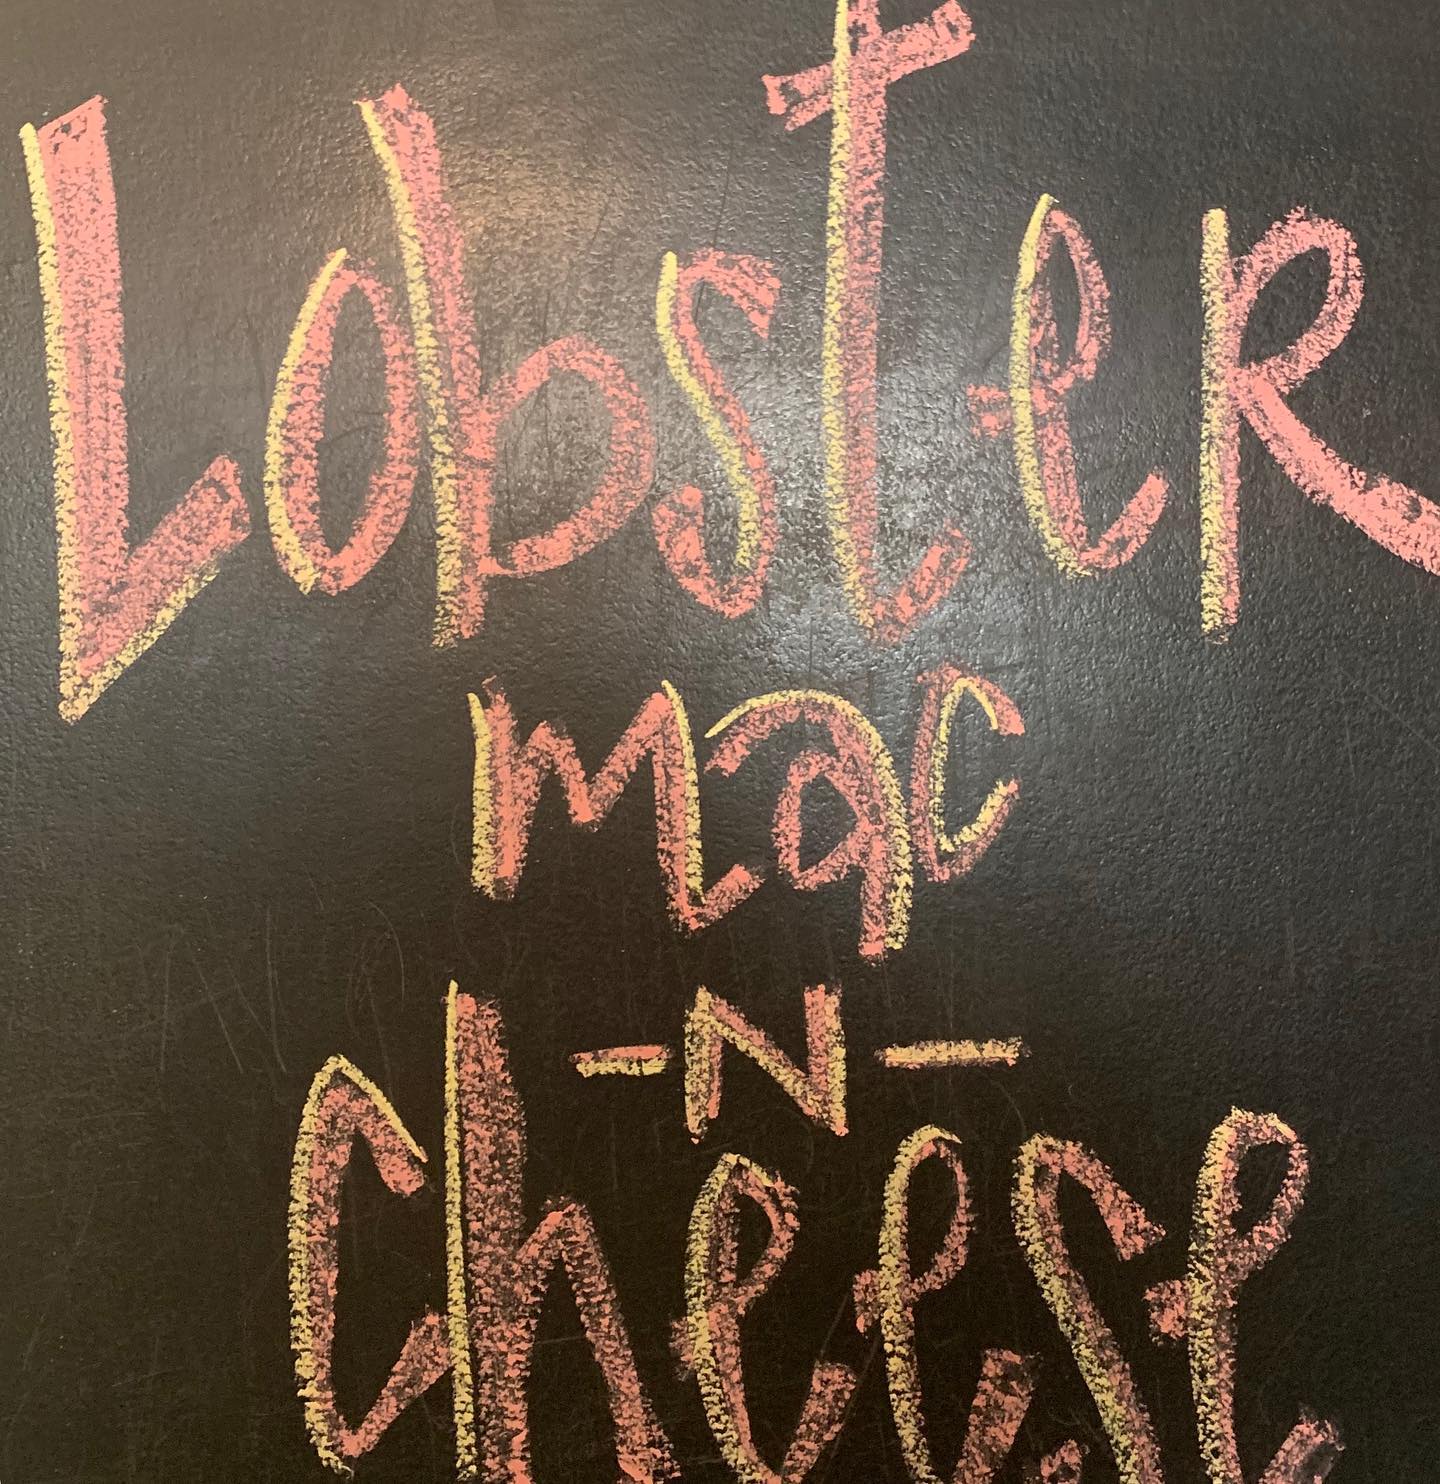 Lobster
mac
-N-
cheese